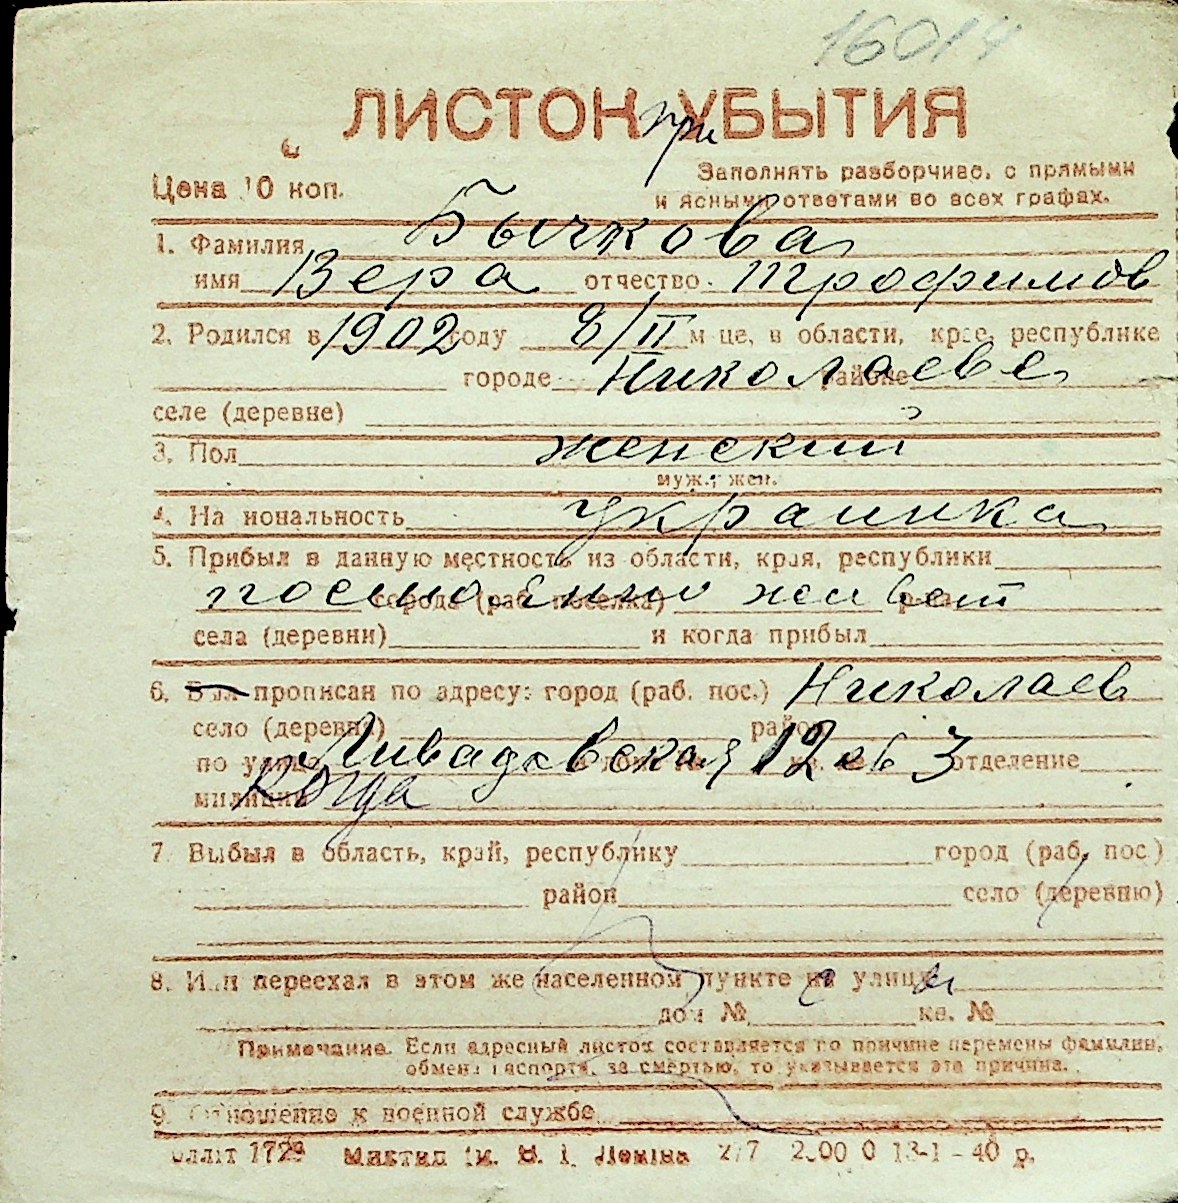 16014
ЛИСТОК при УБЫТИЯ
Цена 10 коп.
Заполнять разборчиво, с прямыми
и ясными ответами во всех графах.
1. Фамилия Бычкова
имя Вера отчество Трофимов
2. Родился в 1902 году 8/II м-це, в области, крае, республике
городе Николаеве районе
селе (деревне)
3. Пол женский
муж., жен.
4. На иональность украинка
5. Прибыл в данную местность из области, края, республики
города (раб. поселка) постоянно живет
села (деревни) и когда прибыл
6. Был прописан по адресу: город (раб. пос.) Николаев
село (деревня) район
по улице Ливадовская 12 кв 3 отделение
милиции когда
7. Выбыл в область, край, республику город (раб. пос.)
район село (деревню)
8. Или переехал в этом же населенном пункте на улицу
дом № кв. №
Примечание. Если адресный листок составляется по причине перемены фамилии,
обмена паспорта, за смертью, то указывается эта причина.
9. Отношение к военной службе
1729 им. В. І. Леніна 13-1-40 р.